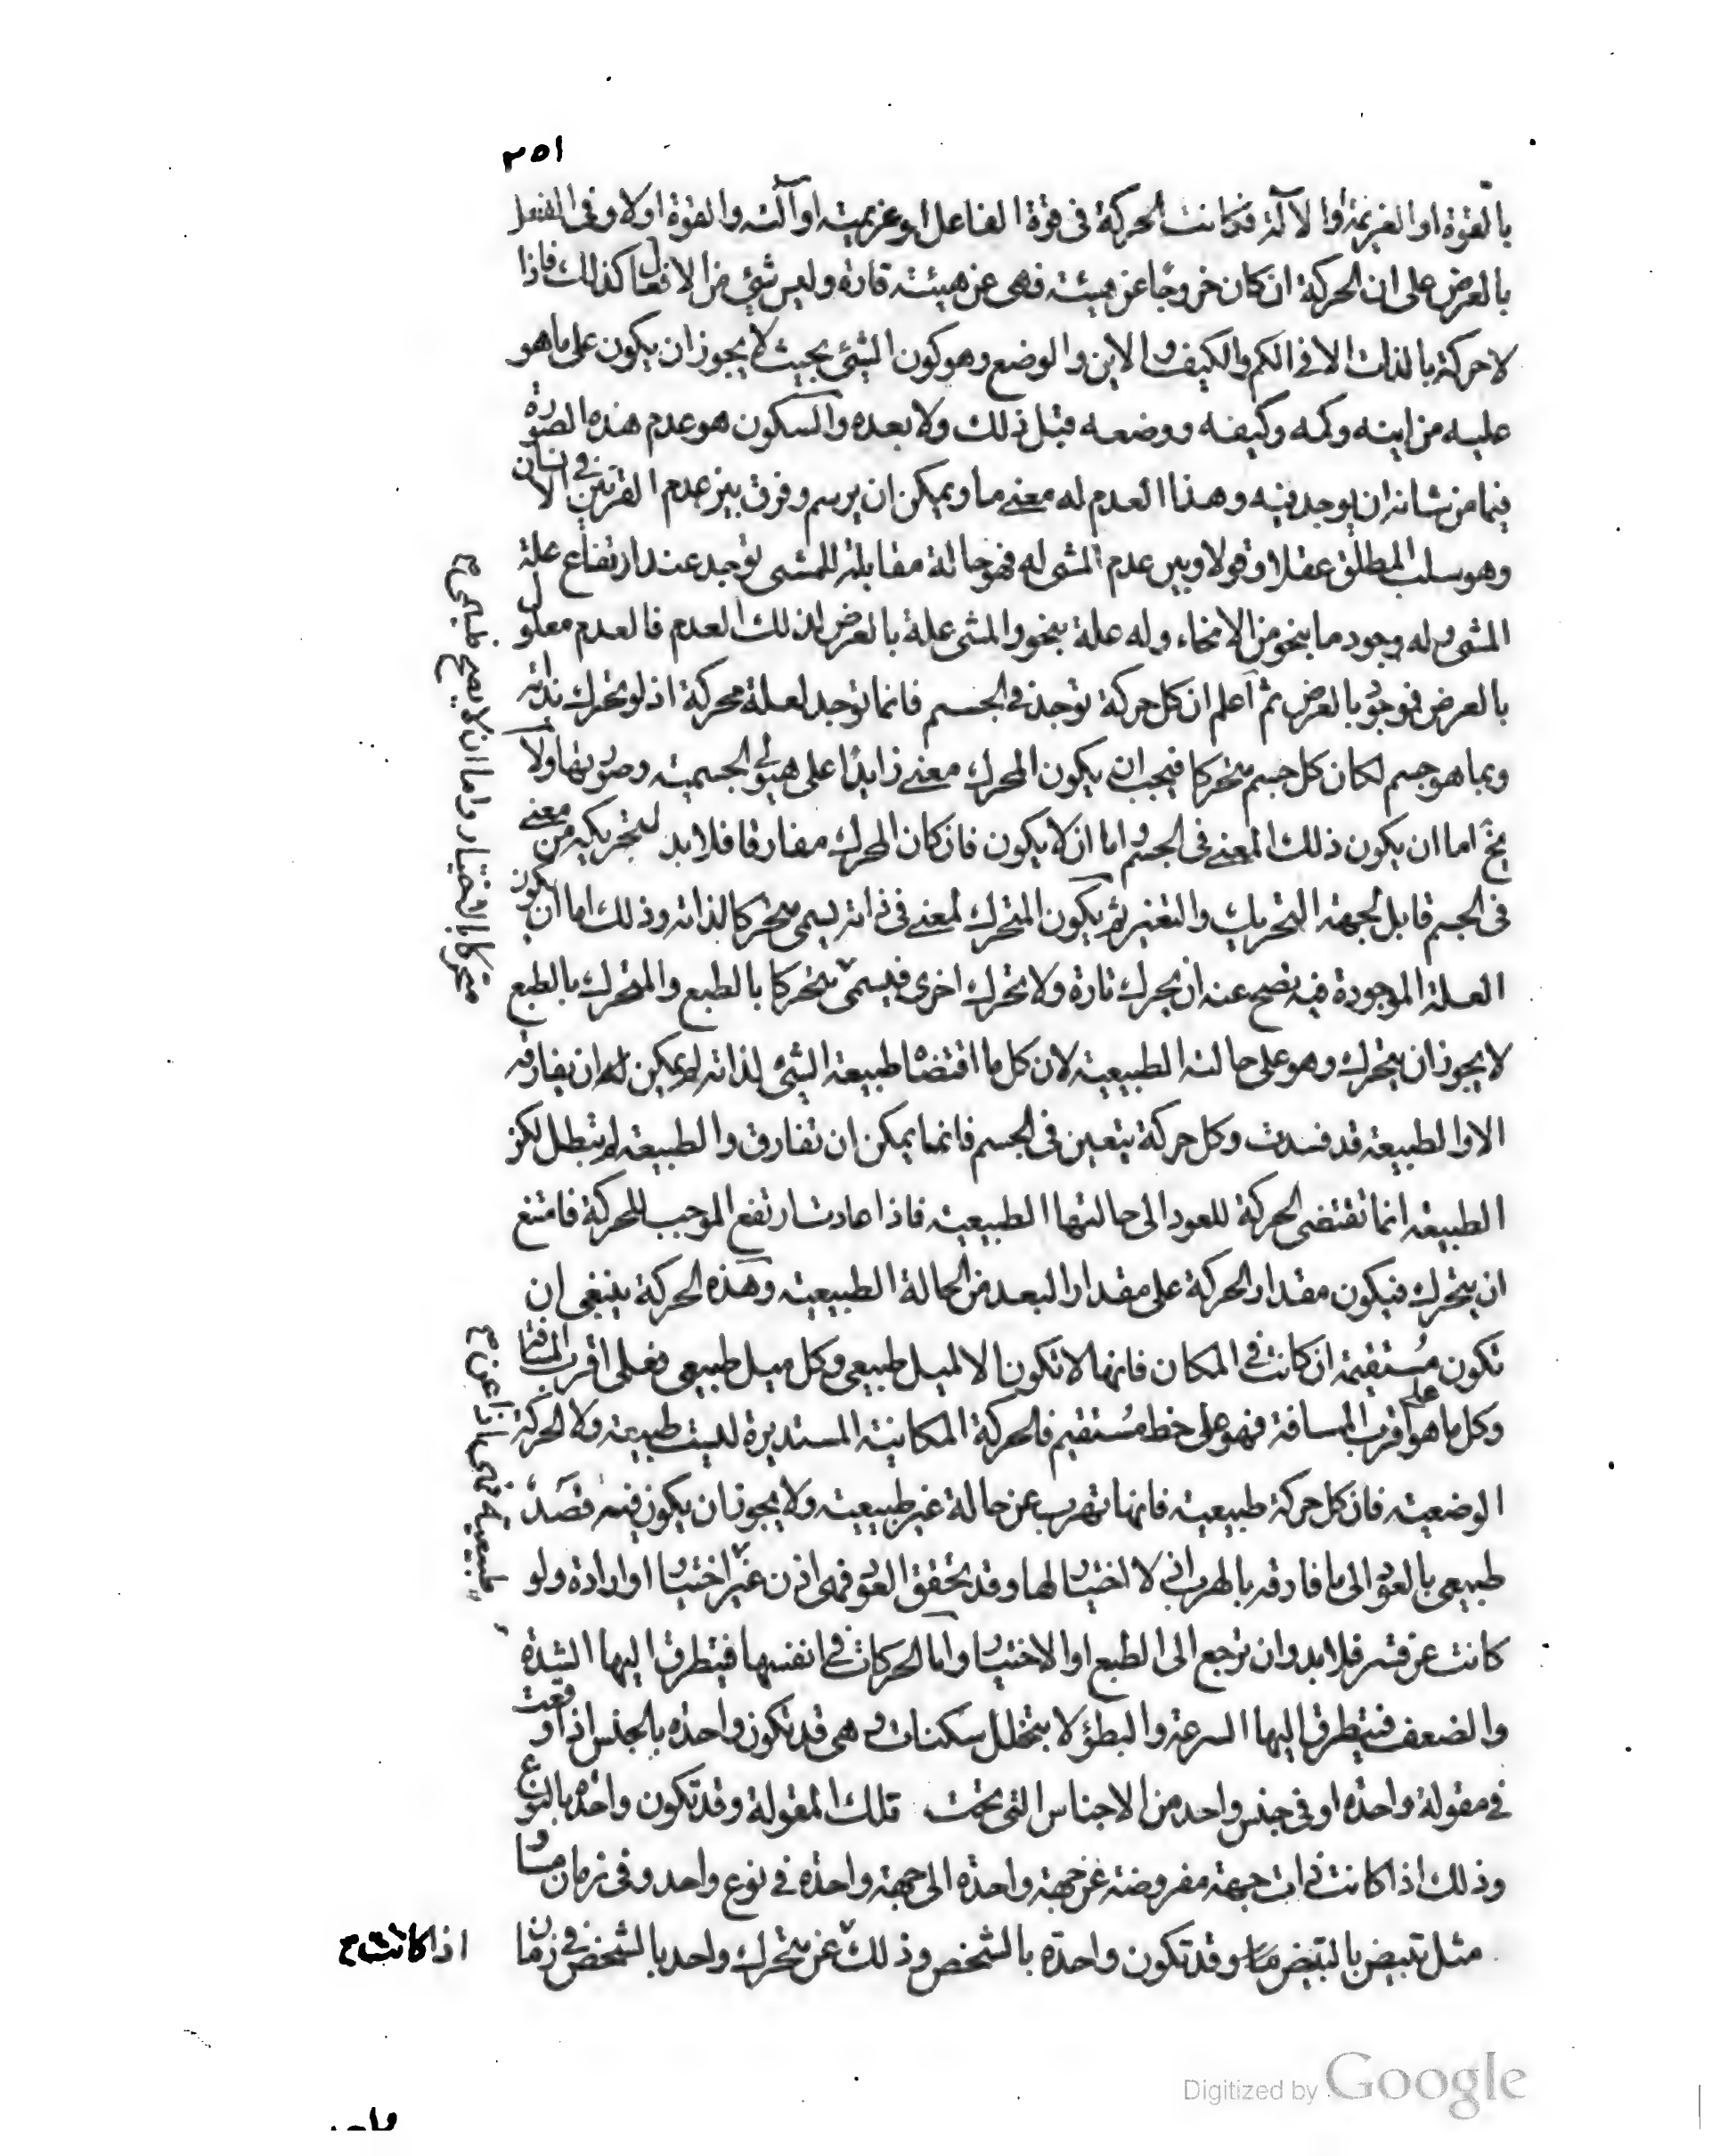 ٢٥١
بالقوة او العزيمة او الالة فكانت الحركة فى قوة الفاعل او عزيمته او آلته والقوة اولا وفى المنفعل
بالعرض على ان الحركة ان كان خروجا عن هيئة فهى عن هيئة قارة وليس شئ من الافعال كذلك فاذا
لا حركة بالذات الا فى الكم والكيف والاين والوضع وهو كون الشئ بحيث لا يجوز ان يكون على ما هو
عليه من اينه وكمه وكيفه ووضعه قبل ذلك ولا بعده والسكون هو عدم هذه الصورة
فيما من شانه ان يوجد فيه وهذا العدم له معنى ما ويمكن ان يرسم وفرق بين عدم القرنين فى الانسان
وهو سلب المطلق عقلا وقولا وبين عدم المشى له فهو حالة مقابلة للمشى توجد عند ارتفاع علة
المشى وله وجود ما بنحو من الانحاء وله علة بنحو والمشى علة بالعرض لذلك العدم فالعدم معلول
بالعرض فهو موجود بالعرض ثم اعلم ان كل حركة توجد فى الجسم فانما توجد لعلة محركة اذ لو تحرك بذاته
وبما هو جسم لكان كل جسم متحركا فيجب ان يكون المحرك معنى زايدا على هيولى الجسمية وصورتها ولا
يخ اما ان يكون ذلك المعنى فى الجسم واما ان لا يكون فان كان المحرك مفارقا فلا بد لتحريكه من معنى
فى الجسم قابل لجهة التحريك والتغير ثم يكون المتحرك لمعنى فى ذاته يسمى متحركا لذاته وذلك اما ان يكون
العلة الموجودة فيه تصح عنه ان يحرك تارة ولا تحرك اخرى فيسمى متحركا بالطبع والمتحرك بالطبع
لا يجوز ان يتحرك وهو على حالته الطبيعية لان كل ما اقتضاه طبيعة الشئ لذاته لم يمكن له ان يفارقه
الا والطبيعة قد فسدت وكل حركة يتعين فى الجسم فانما يمكن ان تفارق والطبيعة لم تبطل لكن
الطبيعة انما تقتضى الحركة للعود الى حالتها الطبيعية فاذا عادت ارتفع الموجب للحركة فامتنع
ان يتحرك فيكون مقدار الحركة على مقدار البعد من الحالة الطبيعية وهذه الحركة ينبغى ان
تكون مستقيمة ان كانت فى المكان فانها لا تكون الا لميل طبيعى وكل ميل طبيعى فعلى اقرب المسافة
وكل ما هو على اقرب المسافة فهو على خط مستقيم فالحركة المكانية المستديرة ليست طبيعية ولا الحركة
الوضعية فان كل حركة طبيعية فانها تهرب عن حالة غير طبيعية ولا يجوز ان يكون فيه قصد
طبيعى بالعود الى ما فارقه بالهرب اذ لا اختيار لها وقد تحقق العود فهى اذن عن اختيار او ارادة ولو
كانت عن قسر فلا بد وان ترجع الى الطبع او الاختيار واما الحركات فى انفسها فيتطرق اليها الشدة
والضعف فيتطرق اليها السرعة والبطؤ لا بتخلل سكنات وهى قد تكون واحدة بالجنس اذا وقعت
فى مقولة واحدة او فى جنس واحد من الاجناس التى تحت تلك المقولة وقد تكون واحدة بالنوع
وذلك اذا كانت ذات جهة مفروضة عن جهة واحدة الى جهة واحدة فى نوع واحد وفى زمان مساو
مثل تبييض بالتبيض وقد تكون واحدة بالشخص وذلك عن متحرك واحد بالشخص فى زمان
متحركا بالاختيار واما ان لا يصح فيسمى
طبيعية
اذا كانت ح
Digitized by Google